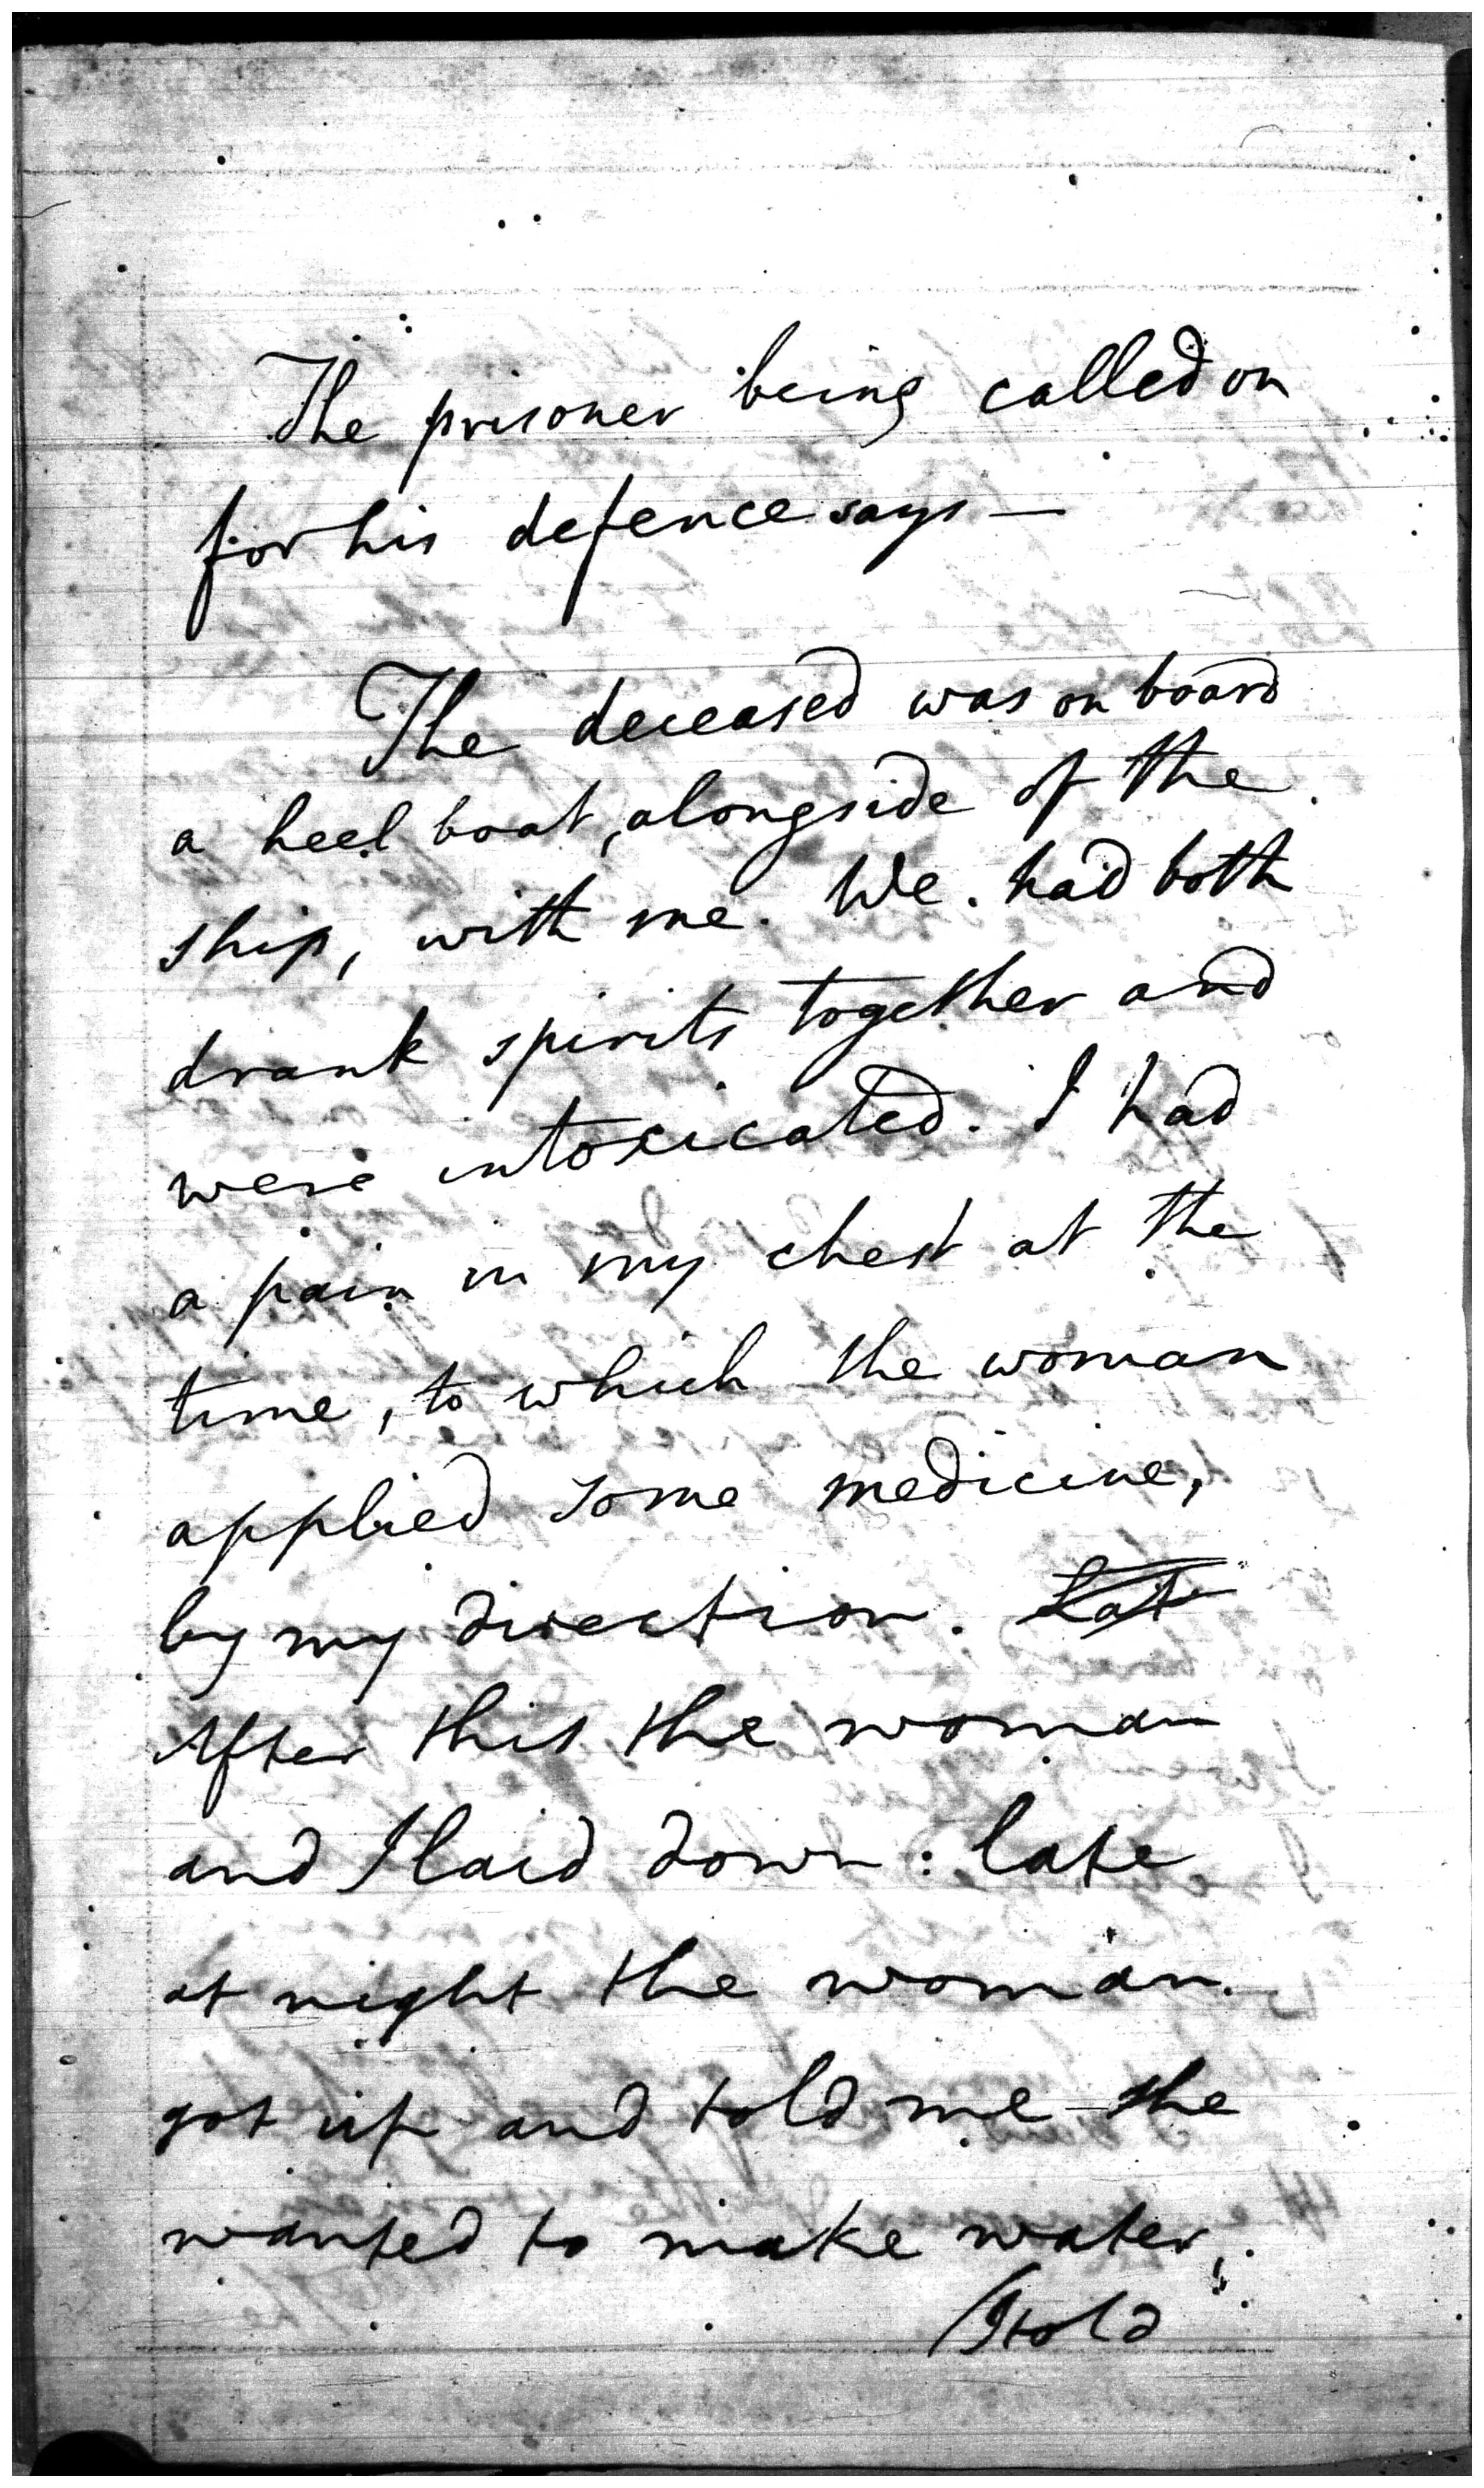 The prisoner being called on
for his defence says —
The deceased was on board
a heel boat, alongside of the
ship, with me. We had both
drank spirits together and
were intoxicated. I had
a pain in my chest at the
time, to which the woman
applied some medicine,
by my direction. Lat
After this the woman
and I laid down: late
at night the woman
got up and told me she
wanted to make water,
/I told